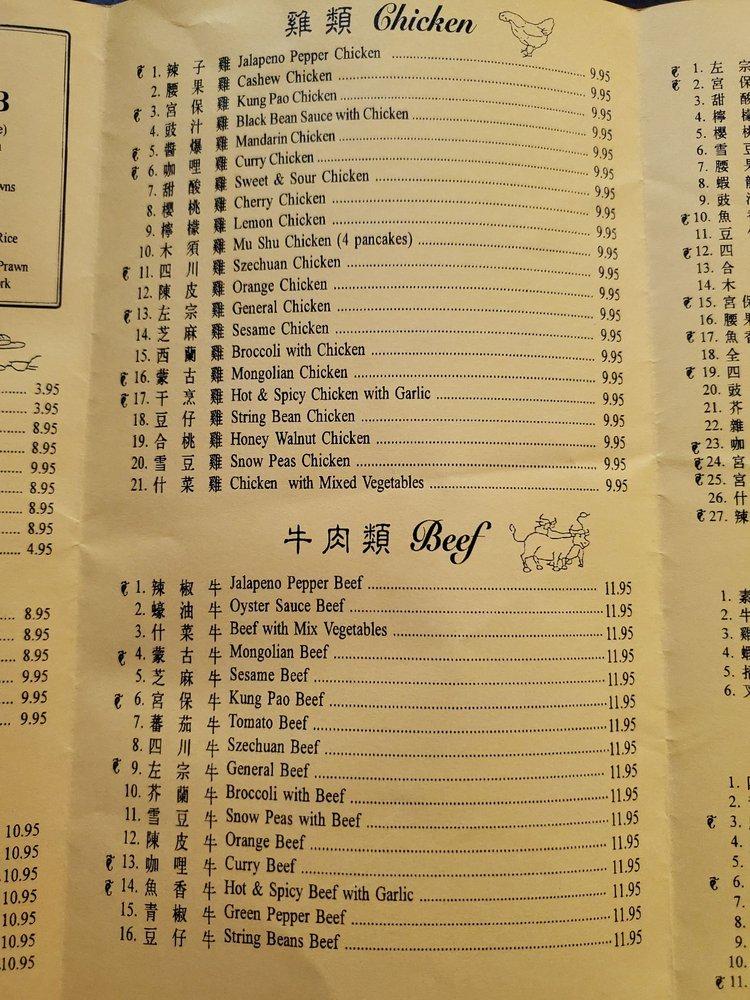 雞類 Chicken
1. 辣子雞 Jalapeno Pepper Chicken 9.95
2. 腰果雞 Cashew Chicken 9.95
3. 宮保雞 Kung Pao Chicken 9.95
4. 豉汁雞 Black Bean Sauce with Chicken 9.95
5. 醬爆雞 Mandarin Chicken 9.95
6. 咖哩雞 Curry Chicken 9.95
7. 甜酸雞 Sweet & Sour Chicken 9.95
8. 櫻桃雞 Cherry Chicken 9.95
9. 檸檬雞 Lemon Chicken 9.95
10. 木須雞 Mu Shu Chicken (4 pancakes) 9.95
11. 四川雞 Szechuan Chicken 9.95
12. 陳皮雞 Orange Chicken 9.95
13. 左宗雞 General Chicken 9.95
14. 芝麻雞 Sesame Chicken 9.95
15. 西蘭雞 Broccoli with Chicken 9.95
16. 蒙古雞 Mongolian Chicken 9.95
17. 干烹雞 Hot & Spicy Chicken with Garlic 9.95
18. 豆仔雞 String Bean Chicken 9.95
19. 合桃雞 Honey Walnut Chicken 9.95
20. 雪豆雞 Snow Peas Chicken 9.95
21. 什菜雞 Chicken with Mixed Vegetables 9.95
牛肉類 Beef
1. 辣椒牛 Jalapeno Pepper Beef 11.95
2. 蠔油牛 Oyster Sauce Beef 11.95
3. 什菜牛 Beef with Mix Vegetables 11.95
4. 蒙古牛 Mongolian Beef 11.95
5. 芝麻牛 Sesame Beef 11.95
6. 宮保牛 Kung Pao Beef 11.95
7. 蕃茄牛 Tomato Beef 11.95
8. 四川牛 Szechuan Beef 11.95
9. 左宗牛 General Beef 11.95
10. 芥蘭牛 Broccoli with Beef 11.95
11. 雪豆牛 Snow Peas with Beef 11.95
12. 陳皮牛 Orange Beef 11.95
13. 咖哩牛 Curry Beef 11.95
14. 魚香牛 Hot & Spicy Beef with Garlic 11.95
15. 青椒牛 Green Pepper Beef 11.95
16. 豆仔牛 String Beans Beef 11.95
Rice
Prawn
3.95
3.95
8.95
8.95
9.95
8.95
8.95
8.95
4.95
8.95
8.95
8.95
9.95
9.95
9.95
10.95
10.95
10.95
10.95
10.95
10.95
10.95
1. 左宗
2. 宮保
3. 甜酸
4. 檸檬
5. 櫻桃
6. 雪豆
7. 腰果
8. 蝦龍
9. 豉
10. 魚香
11. 豆
12. 四
13. 合
14. 木
15. 宮保
16. 腰果
17. 魚香
18. 全
19. 四
20. 豉
21. 芥
22. 雜
23. 咖
24. 宮
25. 宮
26. 什
27. 辣
1. 素
2. 牛
3. 雞
4. 蝦
5.
6.
1.
2.
3.
4.
5.
6.
7.
8.
9.
10.
11.